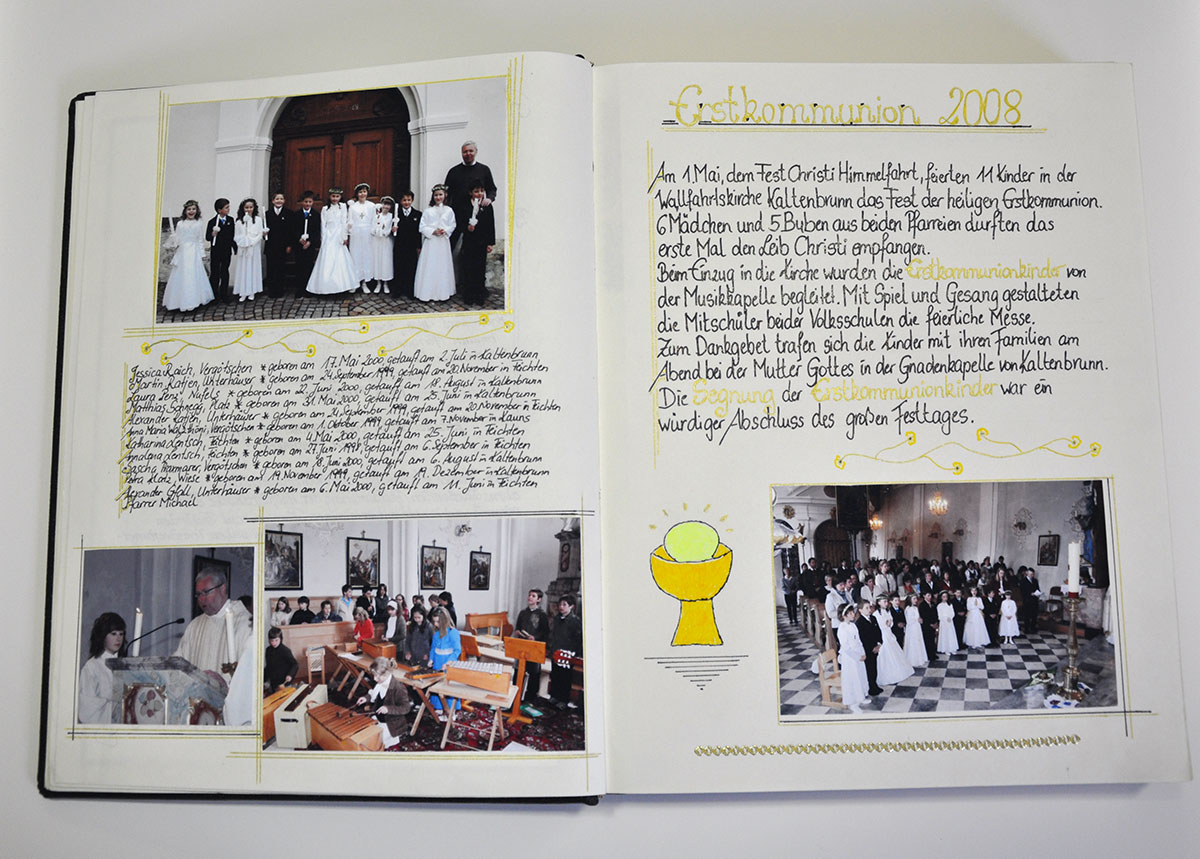 Jessica Raich, Vergötschen * geboren am 17. Mai 2000, getauft am 2. Juli in Kaltenbrunn
Martin Kathrein, Unterhäuser * geboren am 24. September 1999, getauft am 20. November in Feichten
Laura Lenz, Nufels * geboren am 22. Juni 2000, getauft am 18. August in Kaltenbrunn
Matthias Schnegg, Platz * geboren am 31. Mai 2000, getauft am 25. Juni in Kaltenbrunn
Alexander Unterhäuser * geboren am 24. September 1999, getauft am 20. November in Feichten
Anna Maria Vergötschen * geboren am 1. Oktober 1999, getauft am 7. November in Kauns
Katharina Lentsch, Feichten * geboren am 4. Mai 2000, getauft am 25. Juni in Feichten
Lentsch, Feichten * geboren am 27. Juni 1998, getauft am 6. September in Feichten
Sascha Vergötschen * geboren am 18. Juni 2000, getauft am 6. August in Kaltenbrunn
Petra Wiese * geboren am 19. November 1999, getauft am 19. Dezember in Kaltenbrunn
Alexander Unterhäuser * geboren am 6. Mai 2000, getauft am 11. Juni in Feichten
Pfarrer Michael
Erstkommunion 2008
Am 1. Mai, dem Fest Christi Himmelfahrt, feierten 11 Kinder in der
Wallfahrtskirche Kaltenbrunn das Fest der heiligen Erstkommunion.
6 Mädchen und 5 Buben aus beiden Pfarreien durften das
erste Mal den Leib Christi empfangen.
Beim Einzug in die Kirche wurden die Erstkommunionkinder von
der Musikkapelle begleitet. Mit Spiel und Gesang gestalteten
die Mitschüler beider Volksschulen die feierliche Messe.
Zum Dankgebet trafen sich die Kinder mit ihren Familien am
Abend bei der Mutter Gottes in der Gnadenkapelle von Kaltenbrunn.
Die Segnung der Erstkommunionkinder war ein
würdiger Abschluss des großen Festtages.